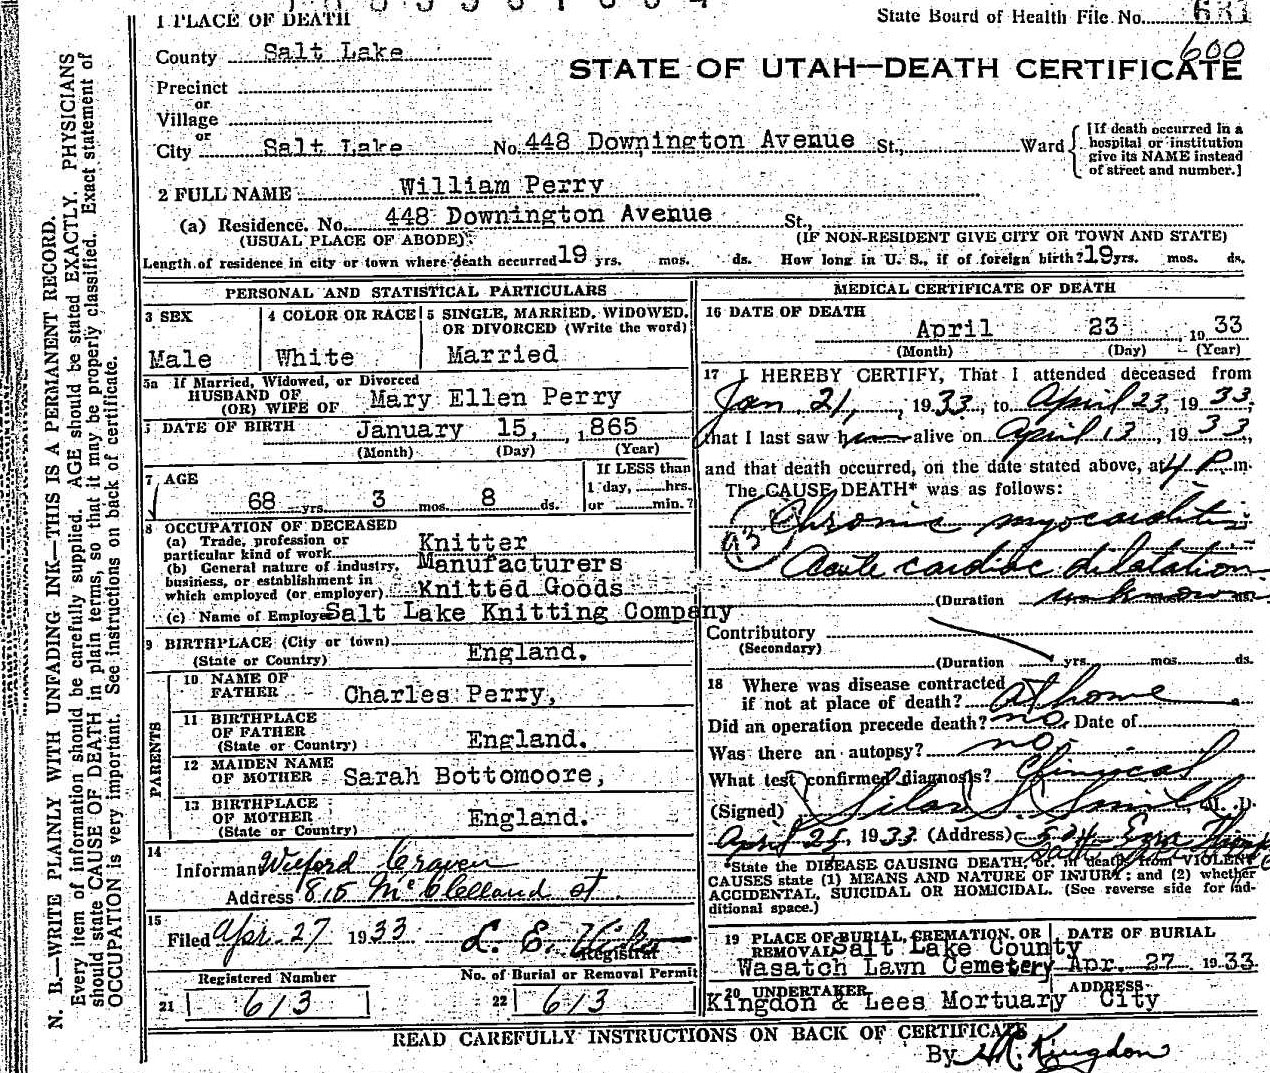 1 PLACE OF DEATH
State Board of Health File No. 631
County Salt Lake
600
STATE OF UTAH—DEATH CERTIFICATE
Precinct
or
Village
or
City Salt Lake No. 448 Downington Avenue St., Ward
[If death occurred in a
hospital or institution
give its NAME instead
of street and number.]
2 FULL NAME William Perry
(a) Residence. No. 448 Downington Avenue St.,
(USUAL PLACE OF ABODE) (IF NON-RESIDENT GIVE CITY OR TOWN AND STATE)
Length of residence in city or town where death occurred 19 yrs. mos. ds. How long in U. S., if of foreign birth? 19 yrs. mos. ds.
PERSONAL AND STATISTICAL PARTICULARS
3 SEX
Male
4 COLOR OR RACE
White
5 SINGLE, MARRIED, WIDOWED,
OR DIVORCED (Write the word)
Married
5a If Married, Widowed, or Divorced
HUSBAND OF
(OR) WIFE OF Mary Ellen Perry
DATE OF BIRTH January 15, 1865
(Month) (Day) (Year)
7 AGE
68 yrs. 3 mos. 8 ds.
If LESS than
1 day, hrs.
or min.?
8 OCCUPATION OF DECEASED
(a) Trade, profession or
particular kind of work Knitter
(b) General nature of industry,
business, or establishment in
which employed (or employer)
Manufacturers
Knitted Goods
(c) Name of Employer Salt Lake Knitting Company
9 BIRTHPLACE (City or town)
(State or Country) England.
PARENTS
10 NAME OF
FATHER Charles Perry,
11 BIRTHPLACE
OF FATHER
(State or Country) England.
12 MAIDEN NAME
OF MOTHER Sarah Bottomoore,
13 BIRTHPLACE
OF MOTHER
(State or Country) England.
14
Informant Wilford Craven
Address 815 McClelland st.
15
Filed Apr. 27 1933 L. E.
Registrar
Registered Number
21 613
No. of Burial or Removal Permit
22 613
MEDICAL CERTIFICATE OF DEATH
16 DATE OF DEATH
April 23 1933
(Month) (Day) (Year)
17 I HEREBY CERTIFY, That I attended deceased from
Jan 21, 1933, to April 23, 1933,
that I last saw him alive on April 13, 1933,
and that death occurred, on the date stated above, at 4 P. m.
The CAUSE DEATH* was as follows:
Chronic myocarditis
93
Acute cardiac dilatation
(Duration unknown
Contributory
(Secondary)
(Duration yrs. mos. ds.
18 Where was disease contracted
if not at place of death? At home
Did an operation precede death? no. Date of
Was there an autopsy? no.
What test confirmed diagnosis? Clinycal
(Signed) Silas S. Smith, M. D.
April 25, 1933 (Address)
*State the DISEASE CAUSING DEATH, or, in death from VIOLENT
CAUSES state (1) MEANS AND NATURE OF INJURY; and (2) whether
ACCIDENTAL, SUICIDAL OR HOMICIDAL. (See reverse side for additional space.)
19 PLACE OF BURIAL, CREMATION, OR
REMOVAL Salt Lake County
Wasatch Lawn Cemetery
DATE OF BURIAL
Apr. 27, 1933
20 UNDERTAKER
Kingdon & Lees Mortuary
ADDRESS
City
READ CAREFULLY INSTRUCTIONS ON BACK OF CERTIFICATE
By Kingdon
N. B.—WRITE PLAINLY WITH UNFADING INK—THIS IS A PERMANENT RECORD.
Every item of information should be carefully supplied. AGE should be stated EXACTLY. PHYSICIANS
should state CAUSE OF DEATH in plain terms, so that it may be properly classified. Exact statement of
OCCUPATION is very important. See instructions on back of certificate.